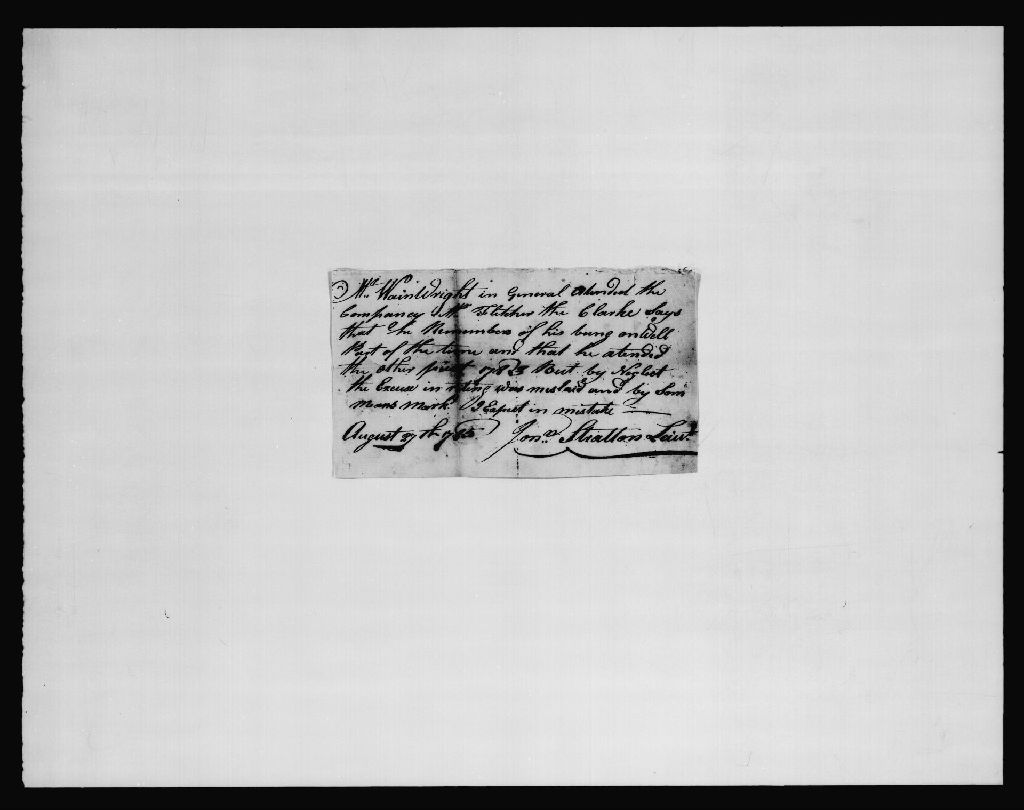 Mr. WainWright in General Atended the
Company Mr. Fletcher the Clarke Says
that he Remembers of his being onWell
Part of the time and that he atended
the other But by Neglect
the Excuse in riting was mislaid and by Som
means mark I Expect in mistake
August 27th 1785 Jonn. Stratton Leiut.